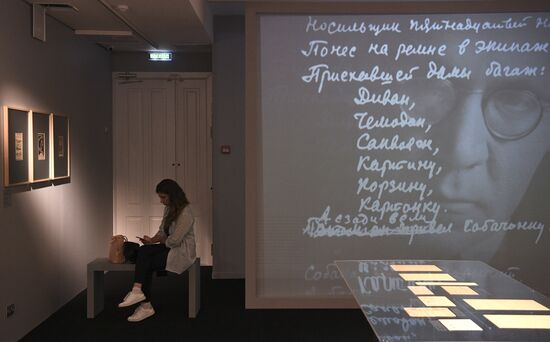 Носильщик пятнадцатый н
Понес на ремне в экипаж
Приехавшей дамы багаж:
Диван,
Чемодан,
Саквояж,
Картину,
Корзину,
Картонку.
А сзади вели
собачонку